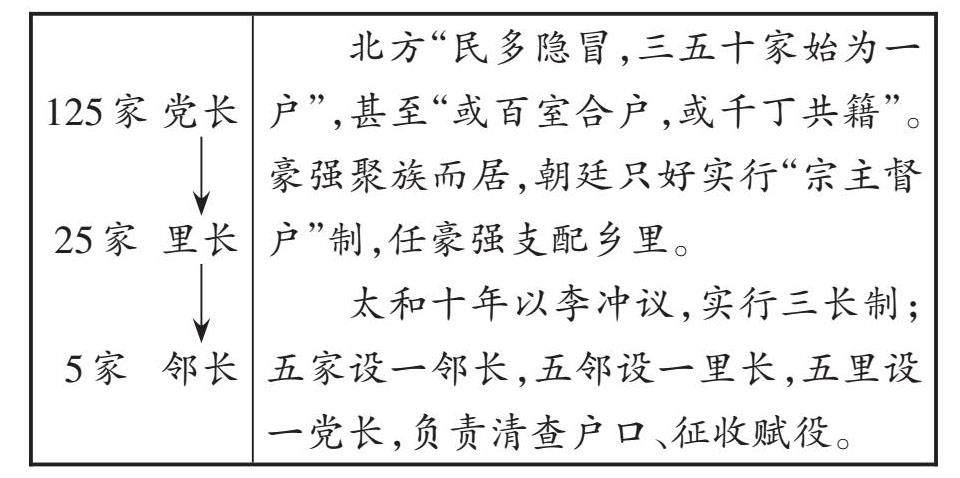 125家 党长
25家 里长
5家 邻长
北方“民多隐冒,三五十家始为一
户”,甚至“或百室合户,或千丁共籍”。
豪强聚族而居,朝廷只好实行“宗主督
户”制,任豪强支配乡里。
太和十年以李冲议,实行三长制;
五家设一邻长,五邻设一里长,五里设
一党长,负责清查户口、征收赋役。